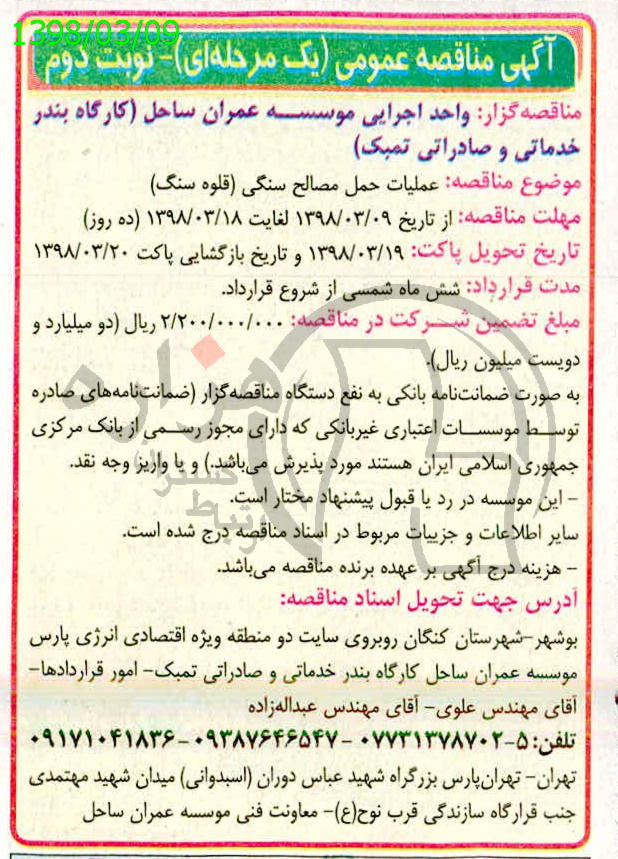 1398/03/09
آگهی مناقصه عمومی (یک مرحله‌ای)- نوبت دوم
مناقصه‌گزار: واحد اجرایی موسسه عمران ساحل (کارگاه بندر
خدماتی و صادراتی تمبک)
موضوع مناقصه: عملیات حمل مصالح سنگی (قلوه سنگ)
مهلت مناقصه: از تاریخ ۱۳۹۸/۰۳/۰۹ لغایت ۱۳۹۸/۰۳/۱۸ (ده روز)
تاریخ تحویل پاکت: ۱۳۹۸/۰۳/۱۹ و تاریخ بازگشایی پاکت ۱۳۹۸/۰۳/۲۰
مدت قرارداد: شش ماه شمسی از شروع قرارداد.
مبلغ تضمین شرکت در مناقصه: ۲/۲۰۰/۰۰۰/۰۰۰ ریال (دو میلیارد و
دویست میلیون ریال).
به صورت ضمانت‌نامه بانکی به نفع دستگاه مناقصه‌گزار (ضمانت‌نامه‌های صادره
توسط موسسات اعتباری غیربانکی که دارای مجوز رسمی از بانک مرکزی
جمهوری اسلامی ایران هستند مورد پذیرش می‌باشد.) و یا واریز وجه نقد.
- این موسسه در رد یا قبول پیشنهاد مختار است.
سایر اطلاعات و جزییات مربوط در اسناد مناقصه درج شده است.
- هزینه درج آگهی بر عهده برنده مناقصه می‌باشد.
آدرس جهت تحویل اسناد مناقصه:
بوشهر-شهرستان کنگان روبروی سایت دو منطقه ویژه اقتصادی انرژی پارس
موسسه عمران ساحل کارگاه بندر خدماتی و صادراتی تمبک- امور قراردادها-
آقای مهندس علوی- آقای مهندس عبداله‌زاده
تلفن: ۵-۰۷۷۳۱۳۷۸۷۰۲ - ۰۹۳۸۷۶۴۶۵۴۷ - ۰۹۱۷۱۰۴۱۸۳۶
تهران- تهران‌پارس بزرگراه شهید عباس دوران (اسبدوانی) میدان شهید مهتمدی
جنب قرارگاه سازندگی قرب نوح(ع)- معاونت فنی موسسه عمران ساحل
هزاره